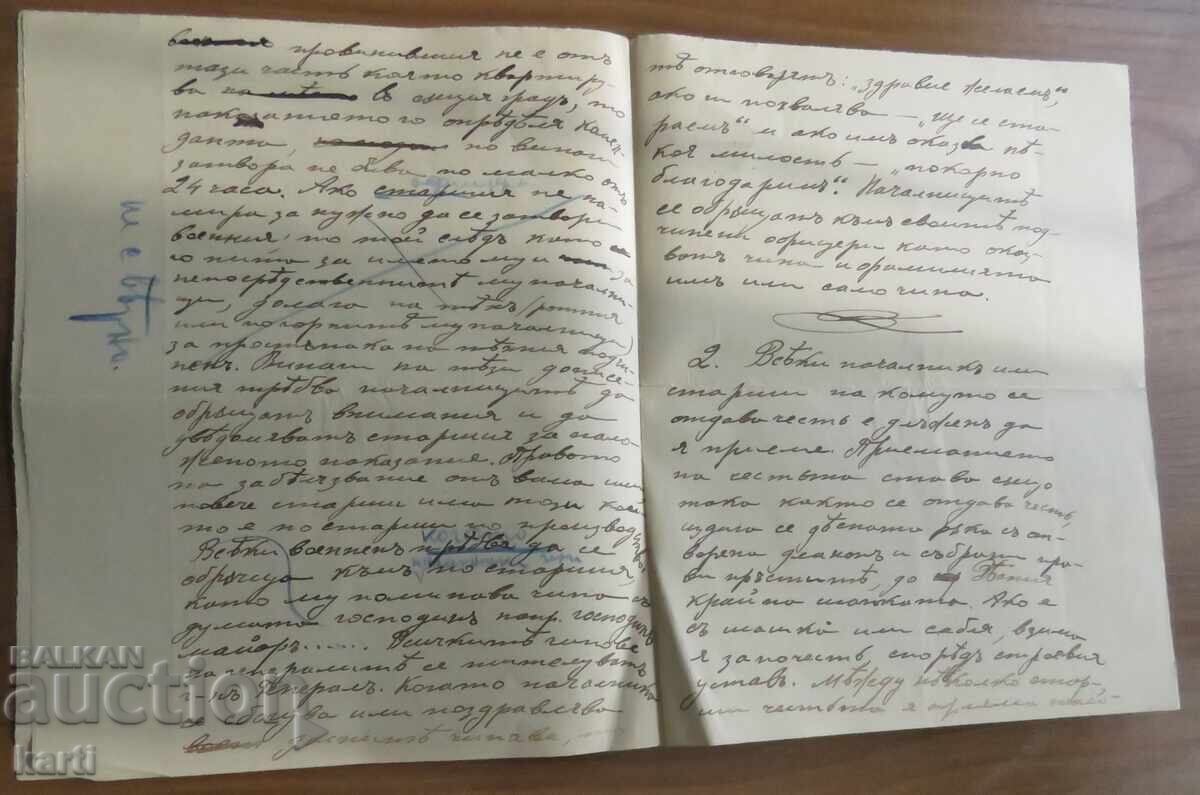 провинившия не е отъ
тази часть която квартиру-
ва въ същия градъ, то
наказанието го опрѣдѣля комен-
данта, но винаги
затвора не бива по малко отъ
24 часа. Ако старшия не на-
мира за нужно да се затвори
военния, то той слѣдъ като
го пита за името му и за
непосрѣдственитѣ му начални-
ци,
или погорнитѣ му началници)
за простъпката на
ненъ. Винаги на тѣзи донесе-
ния трѣбва началницитѣ да
обръщатъ внимания и да
увѣдомяватъ старшия за нало-
женото наказание. Правото
на забѣлѣзвание отъ двама или
повече старши има този кой-
то е по старши по производство
Всѣки военненъ трѣбва да се
обръща къмъ по старшия,
като му поминава чина съ
думата господинъ напр. господинъ
майоръ...... Всичкитѣ чинове
на генералитѣ се титулуватъ
г-нъ Генералъ. Когато началника
се сбогува или поздравлява
чинове,
и е вѣрни.
тѣ отговарятъ: „здравие желаемъ",
ако ги похвалява – „ще се ста-
раемъ" и ако имъ оказва нѣ-
коя милость – „покорно
благодаримъ". Началницитѣ
се обръщатъ къмъ своитѣ под-
чинени офицери като оказ-
ватъ чина и фамилията
имъ или само чина.
2. Всѣки началникъ или
старши на комуто се
отдава честь е длъженъ да
я приеме. Приеманието
на честьта става също
така както се отдава честь,
издига се дѣсната рѫка съ от-
ворена дланъ и събрани пра-
ви пръстите, до
край на шапката. Ако е
съ шашка или сабля, взима
я за почесть, спорѣдъ строевия
уставъ. Между нѣколко стар-
ши честьта я приема най-
BALKAN
auction
karti